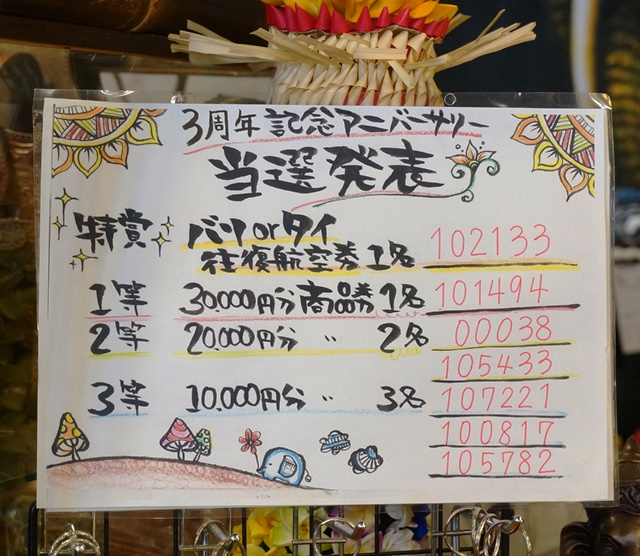 3周年 記念アニバーサリー
当選発表
特賞 バリorタイ
往復航空券 1名 102133
1等 30.000円分商品券1名 101494
2等 20.000円分 〃 2名 00038
105433
3等 10.000円分 〃 3名 107221
100817
105782